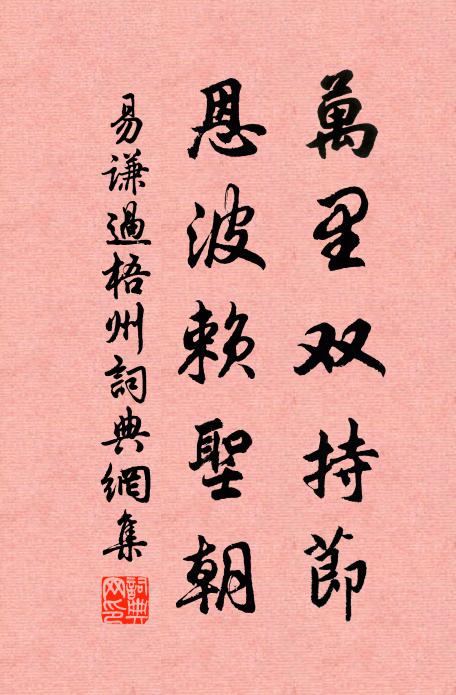 萬里双持節
恩波賴聖朝
易谦過梧州詞典網集
詞典网印